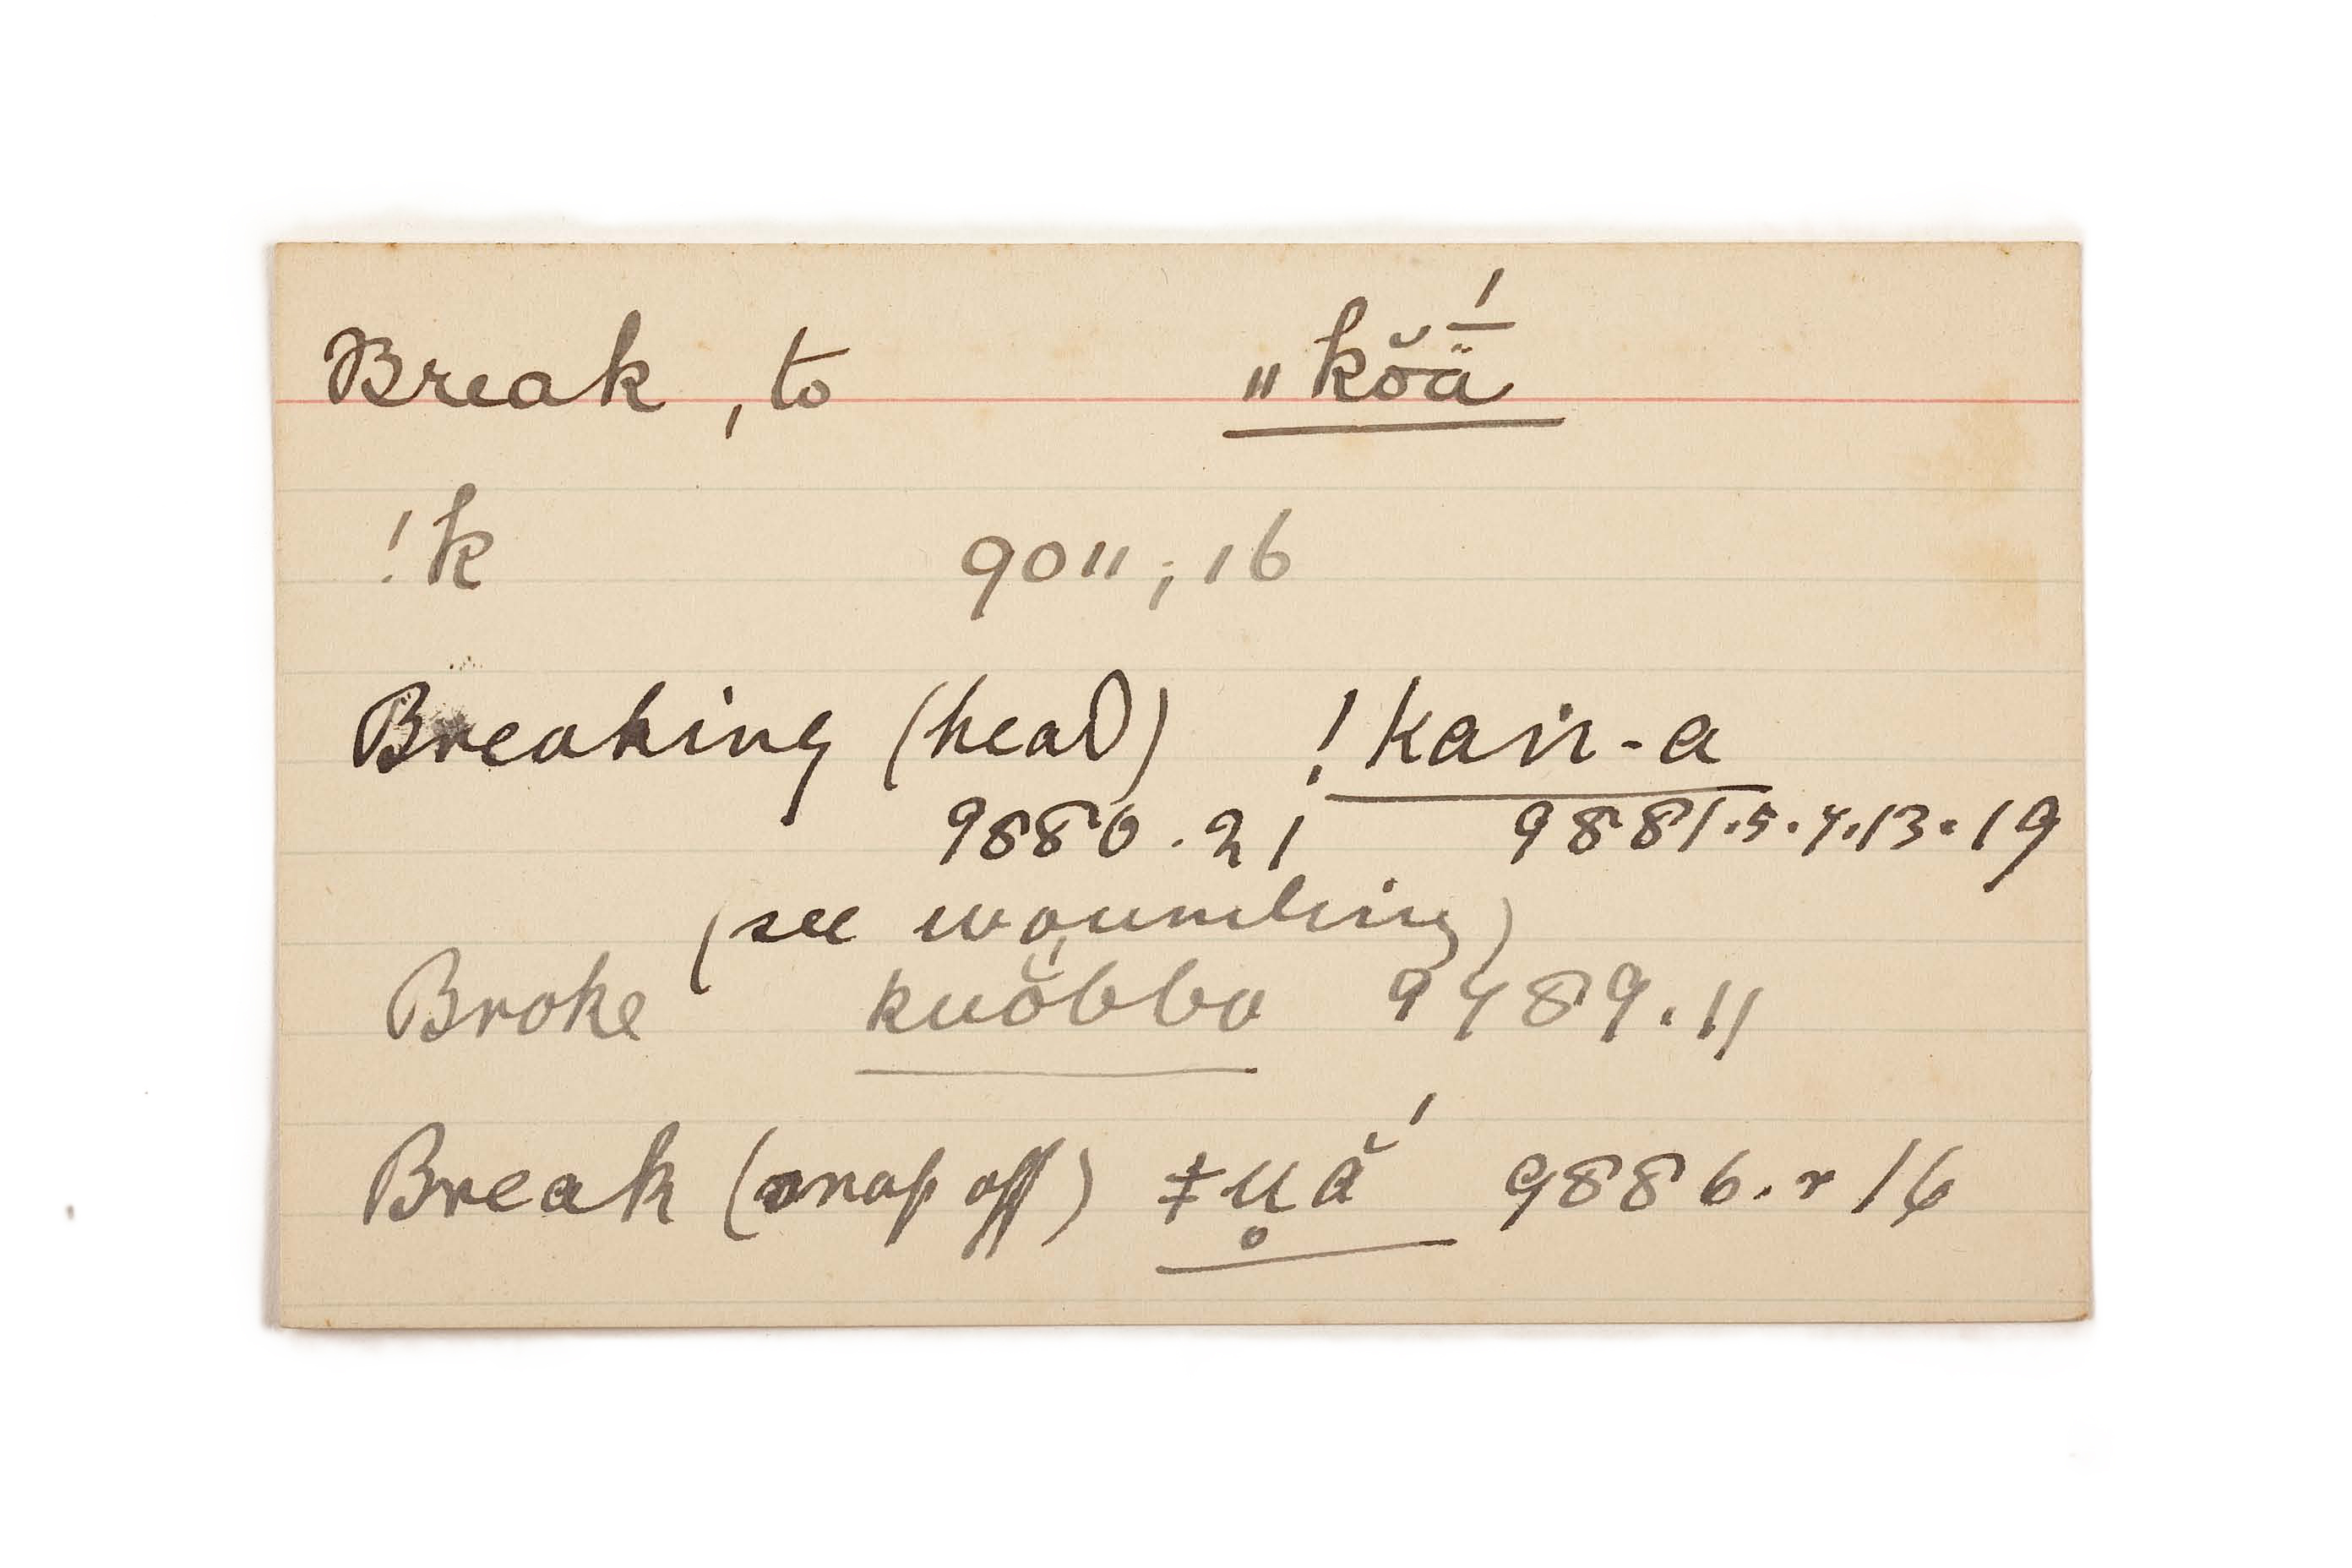 Break, to ॥kŏä́
!k 9011; 16
Breaking (head) !kaṅ-a
9880.21 9881.5.7.13.19
(see wounding)
Broke kuŏ́bba 9489.11
Break (snap off) ǂu̥ắ 9886.r 16